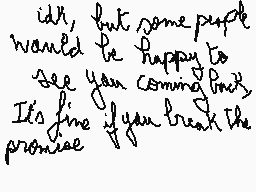 idk, but some people
would be happy to
see you coming back,
It's fine if you break the
promise